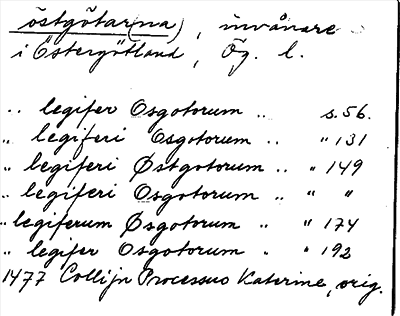 östgötar(na), invånare
i Östergötland, Ög. l.
.. legifer Osgotorum .. s. 56.
„ legiferi Osgotorum .. „ 131
„ legiferi Østgotorum .. „ 149
.. legiferi Osgotorum .. „ „
.. legiferum Øsgotorum .. „ 174
„ legifer Osgotorum . „ 192
1477 Collijn Processus Katerine, orig.